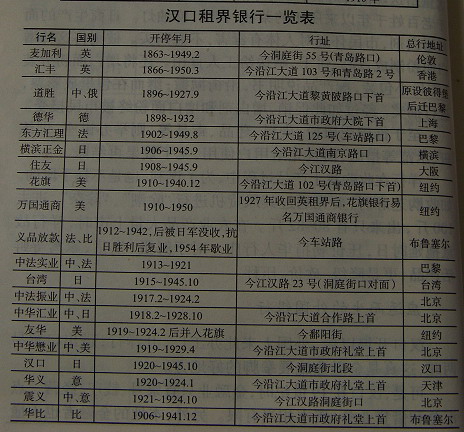 汉口租界银行一览表
行名 国别 开停年月 行址 总行地址
麦加利 英 1863~1949.2 今洞庭街55号(青岛路口) 伦敦
汇丰 英 1866~1950.3 今沿江大道103号和青岛路2号 香港
道胜 中、俄 1896~1927.9 今沿江大道黎黄陂路口下首 原设彼得堡
后迁巴黎
德华 德 1898~1932 今沿江大道市政府大院下首 上海
东方汇理 法 1902~1949.8 今沿江大道125号(车站路口) 巴黎
横滨正金 日 1906~1945.9 今沿江大道南京路口 横滨
住友 日 1908~1945.9 今江汉路 大阪
花旗 美 1910~1940.12 今沿江大道102号(青岛路口下首) 纽约
万国通商 美 1910~1950 1927年收回英租界后,花旗银行易
名万国通商银行 纽约
义品放款 法、比 1912~1942,后被日军没收,抗
日胜利后复业,1954年歇业 今车站路 布鲁塞尔
中法实业 中、法 1913~1921 巴黎
台湾 日 1915~1945.10 今江汉路23号(洞庭街口对面) 台湾
中法振业 中、法 1917.2~1924.2 北京
中华汇业 中、日 1918.2~1928.10 今沿江大道合作路上首 北京
友华 美 1919~1924.2后并入花旗 今鄱阳街 纽约
中华懋业 中、美 1919~1929.4 今沿江大道市政府礼堂上首 北京
汉口 日 1920~1945.10 今洞庭街北段 汉口
华义 意 1920~1924.1 今沿江大道市政府礼堂上首 天津
震义 中、意 1921~1924.10 今江汉路洞庭街口 北京
华比 比 1906~1941.12 今沿江大道市政府礼堂上首 布鲁塞尔